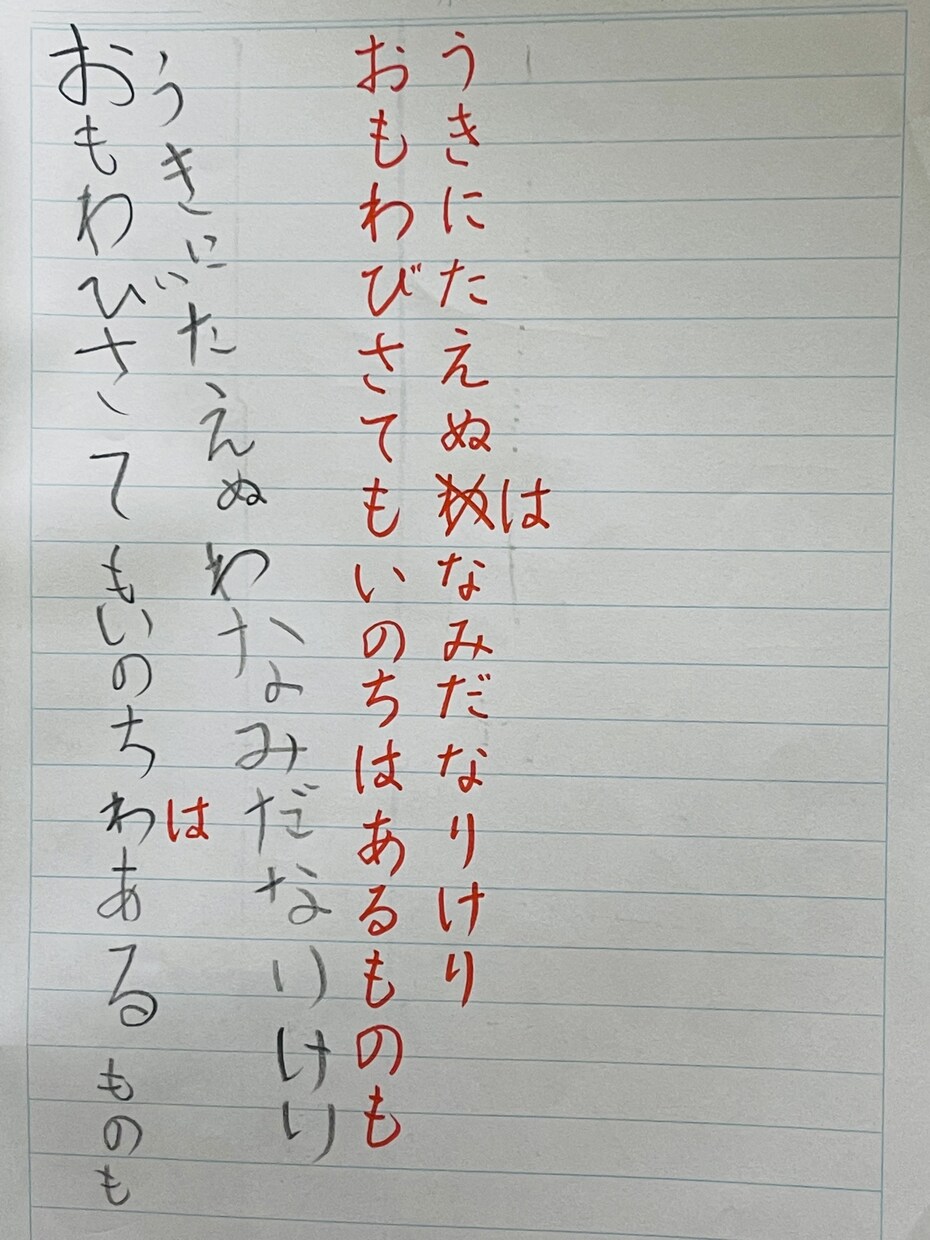 うきにたえぬはなみだなりけり
おもわびさてもいのちはあるものも
うきにたえぬわなみだなりけり
は
おもわびさてもいのちわあるものも